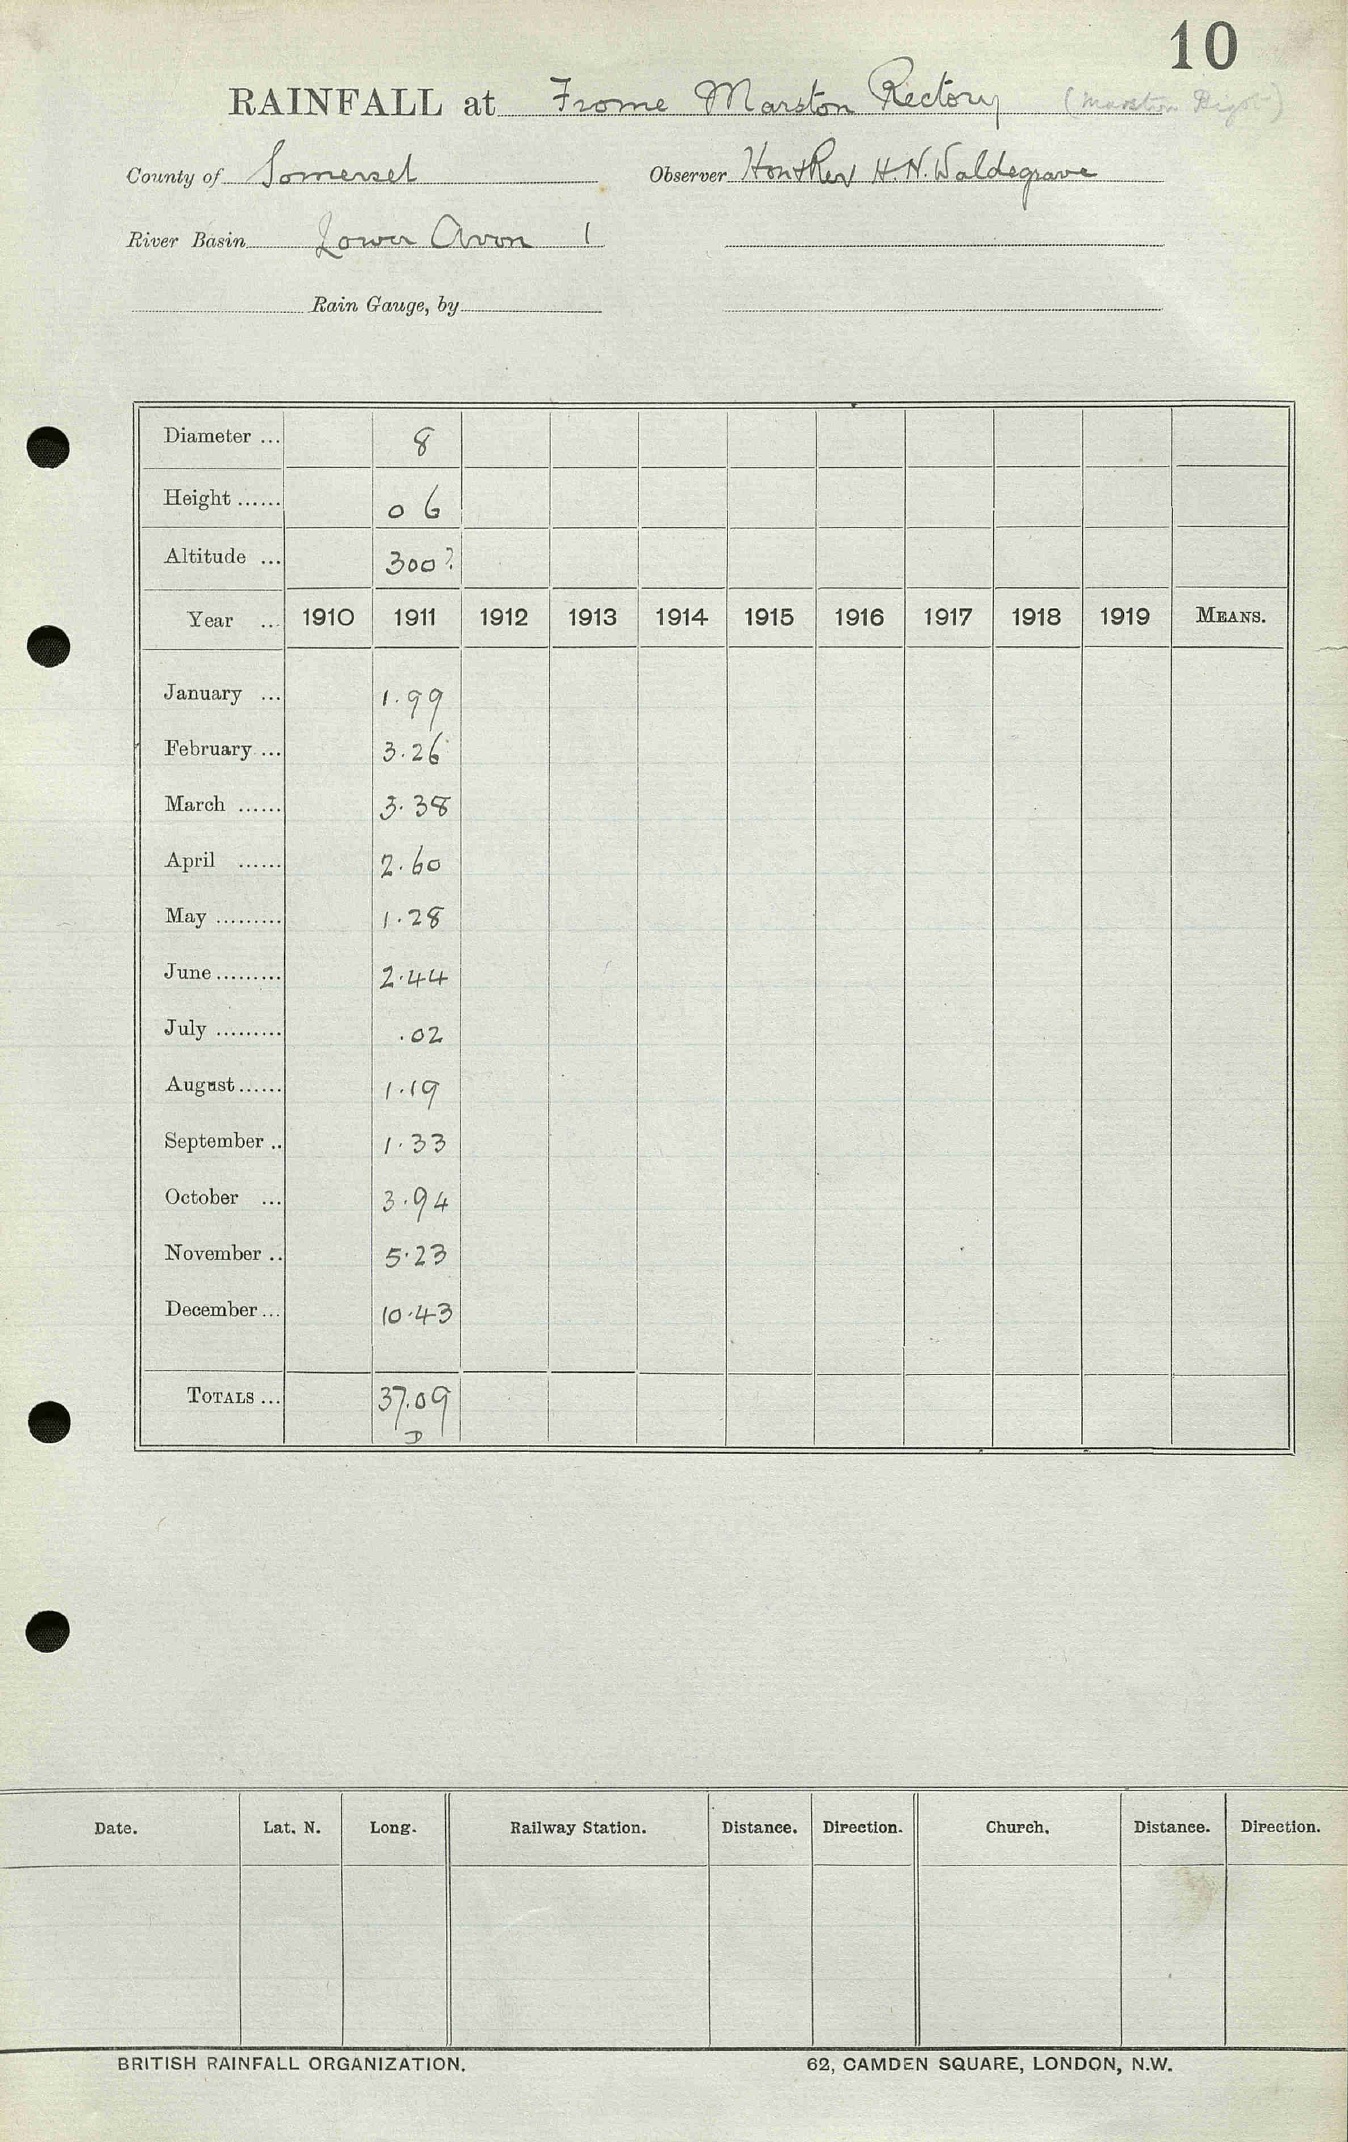 10
RAINFALL at Frome Marston Rectory (Marston Bigot)
County of Somerset Observer Hon & Rev H. N. Waldegrave
River Basin Lower Avon 1
Rain Gauge, by
Diameter ... 8
Height ...... 0 6
Altitude ... 300?
Year ... 1910 1911 1912 1913 1914 1915 1916 1917 1918 1919 MEANS.
January ... 1.99
February ... 3.26
March ...... 3.38
April ...... 2.60
May ......... 1.28
June ......... 2.44
July ......... .02
August ...... 1.19
September .. 1.33
October ... 3.94
November .. 5.23
December ... 10.43
TOTALS ... 37.09
D
Date. Lat. N. Long. Railway Station. Distance. Direction. Church. Distance. Direction.
BRITISH RAINFALL ORGANIZATION. 62, CAMDEN SQUARE, LONDON, N.W.